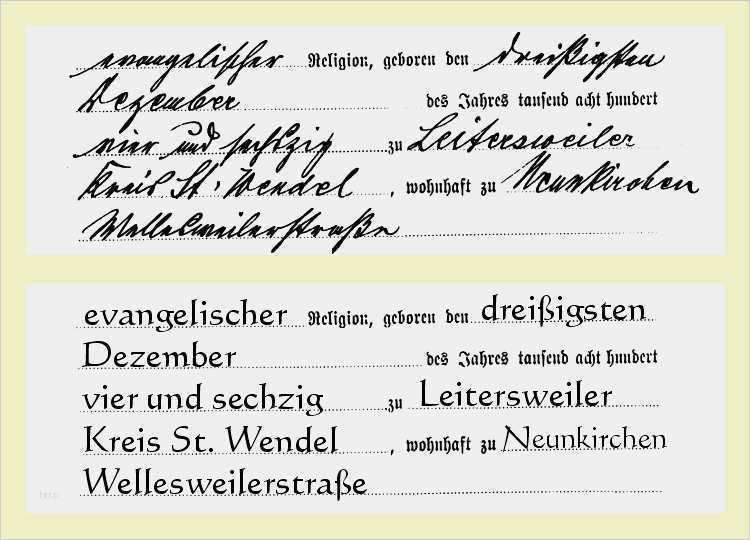 evangelischer Religion, geboren den dreißigsten
Dezember des Jahres tausend acht hundert
vier und sechszig zu Leitersweiler
Kreis St. Wendel, wohnhaft zu Neunkirchen
Wellesweilerstraße
evangelischer Religion, geboren den dreißigsten
Dezember des Jahres tausend acht hundert
vier und sechzig zu Leitersweiler
Kreis St. Wendel, wohnhaft zu Neunkirchen
Wellesweilerstraße